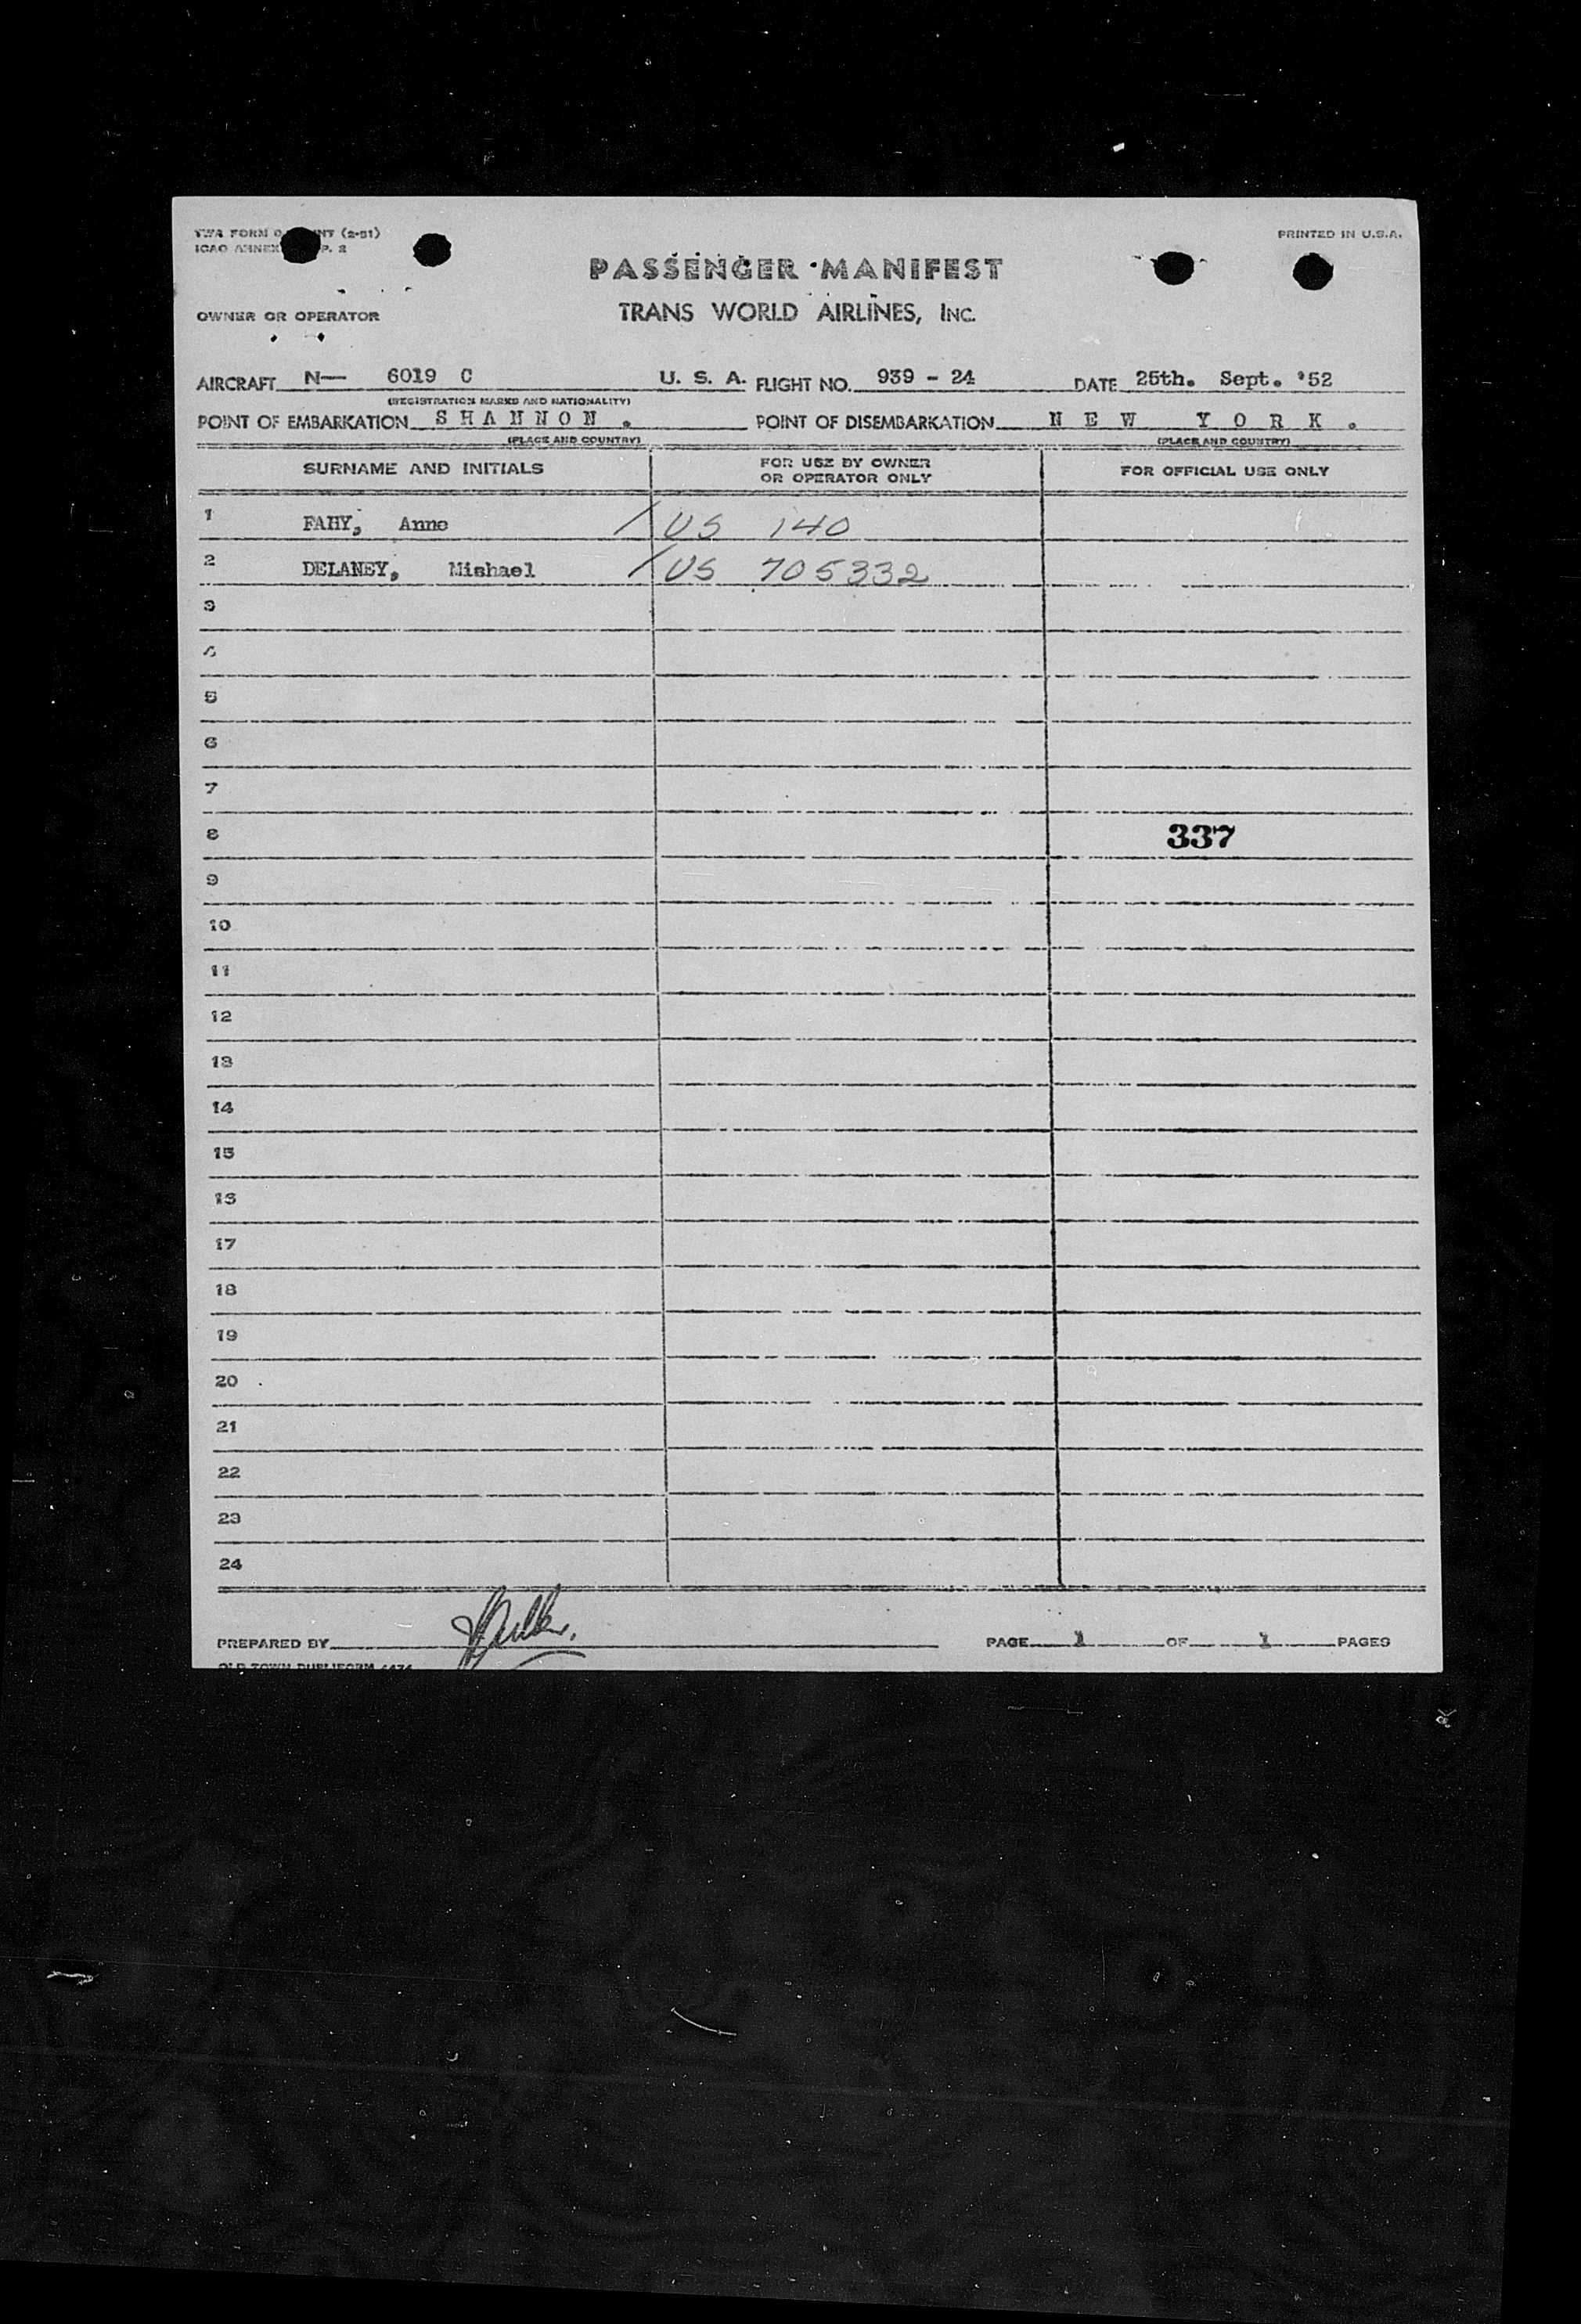 TWA FORM (2-51)
ICAO ANNEX P. 2
PRINTED IN U.S.A.
PASSENGER MANIFEST
OWNER OR OPERATOR
TRANS WORLD AIRLINES, INC.
AIRCRAFT N— 6019 C U. S. A. FLIGHT NO. 939 - 24 DATE 25th. Sept. '52
(REGISTRATION MARKS AND NATIONALITY)
POINT OF EMBARKATION S H A N N O N . POINT OF DISEMBARKATION N E W Y O R K .
(PLACE AND COUNTRY) (PLACE AND COUNTRY)
SURNAME AND INITIALS FOR USE BY OWNER OR OPERATOR ONLY FOR OFFICIAL USE ONLY
1 FAHY, Anne / US 140
2 DELANEY, Mishael / US 705332
3
4
5
6
7
8 337
9
10
11
12
13
14
15
16
17
18
19
20
21
22
23
24
PREPARED BY PAGE 1 OF 1 PAGES